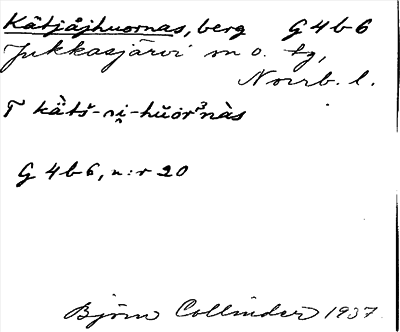 Kätjåjhuornas, berg G 4 b 6
Jukkasjärvi sn o. tg,
Norrb. l.
G 4 b 6, n:r 20
Björn Collinder 1937